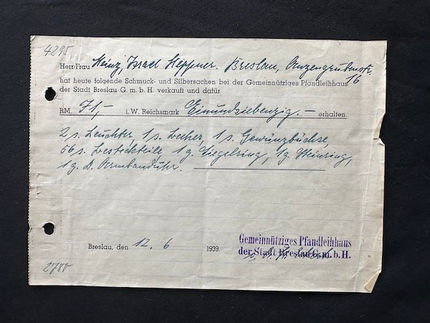 4295
Herr/Frau Heinz Israel Heppner. Breslau, Anzengruberstr.
16
hat heute folgende Schmuck- und Silbersachen bei der Gemeinnütziges Pfandleihhaus
der Stadt Breslau G. m. b. H. verkauft und dafür
RM. 71,- i. W. Reichsmark Einundsiebenzig. — erhalten.
2 s. Leuchter 1 s. Becher, 1 s. Gewürzbüchse,
56 s. Besteckteile 1 g. Siegelring, 1 g. Ring,
1 g. D. Armbanduhr.
Breslau, den 12. 6 1939.
Gemeinnütziges Pfandleihhaus
der Stadt Breslau G. m. b. H.